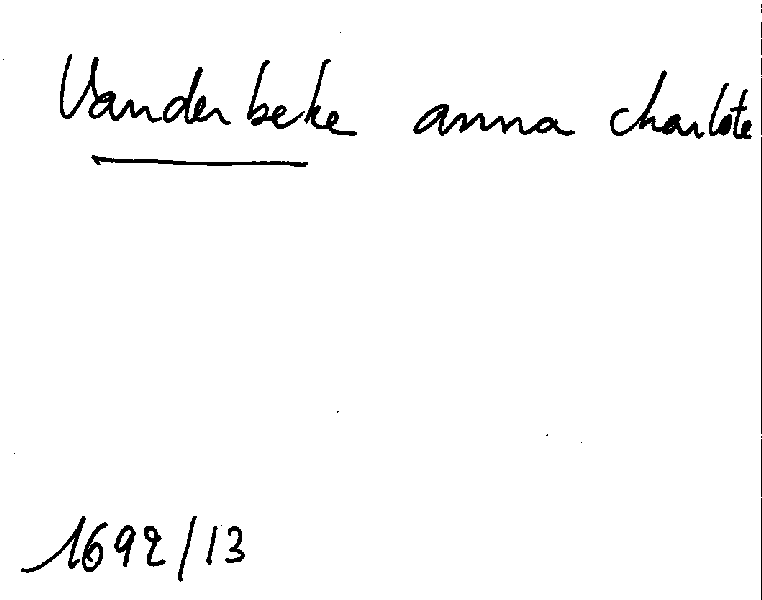 Vanderbeke anna charlote
1692/13